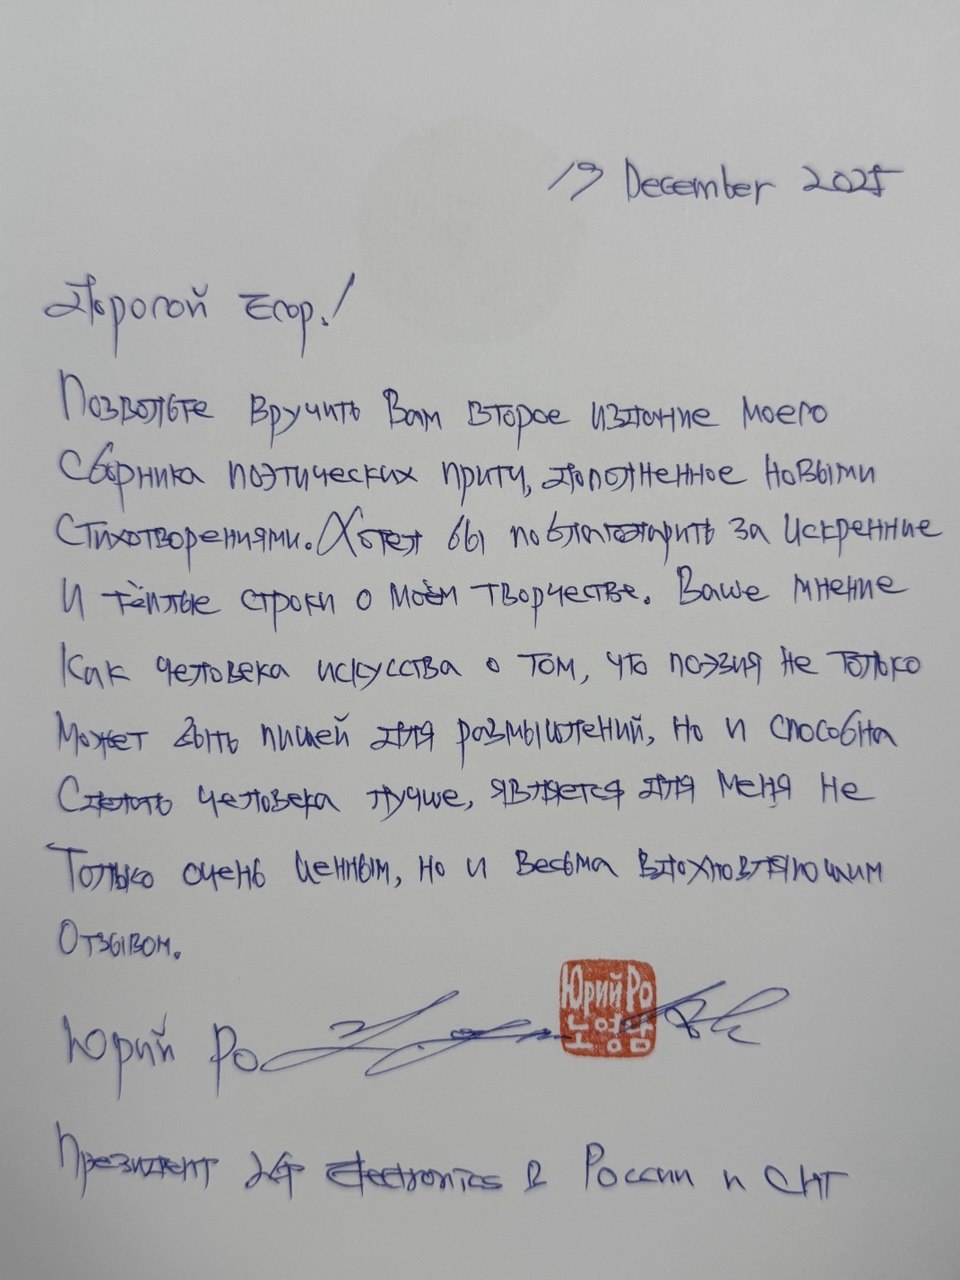 19 December 2025
Дорогой Егор!
Позвольте вручить Вам второе издание моего
сборника поэтических притч, дополненное новыми
стихотворениями. Хотел бы поблагодарить за искренние
и тёплые строки о моём творчестве. Ваше мнение
как человека искусства о том, что поэзия не только
может быть пищей для размышлений, но и способна
сделать человека лучше, является для меня не
только очень ценным, но и весьма вдохновляющим
отзывом.
Юрий Ро
노영남
Юрий Ро
Президент LG Electronics в России и СНГ